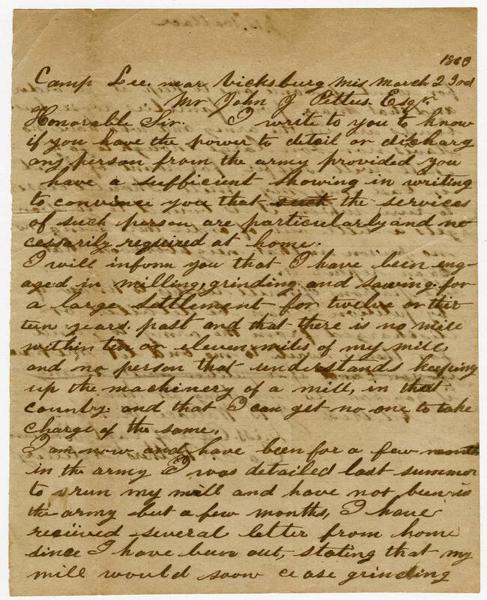 1863
Camp Lee, near Vicksburg Mis March 23rd
Mr John J Pettus Esqr.
Honorable Sir. I writ to you to know
if you have the power to detail or discharg
any person from the army provided you
have a sufficient showing in writing
to convince you that such the services
of such person are particularly and ne
cessarily required at home.
I will inform you that I have been eng
aged in milling, grinding and sawing for
a large settlement for twelve or thir
teen years past and that there is no mill
within ten or eleven miles of my mill
and no person that understands keeping
up the machinery of a mill, in that
county. and that I can get no one to take
charge of the same.
I am now and have been for a few months
in the army I was detailed last summer
to run my mill and have not been in
the army but a few months, I have
received several letter from home
since I have been out, stating that my
mill would soon cease grinding